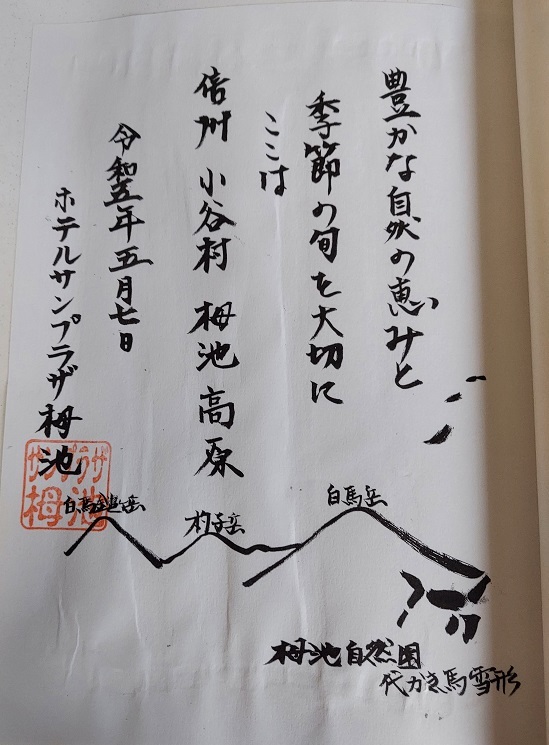 豊かな自然の恵みと
季節の旬を大切に
ここは
信州 小谷村 栂池高原
令和五年五月七日
ホテルサンプラザ栂池
サンプラザ
栂池
白馬鑓岳
杓子岳
白馬岳
栂池自然園
代かき馬雪形